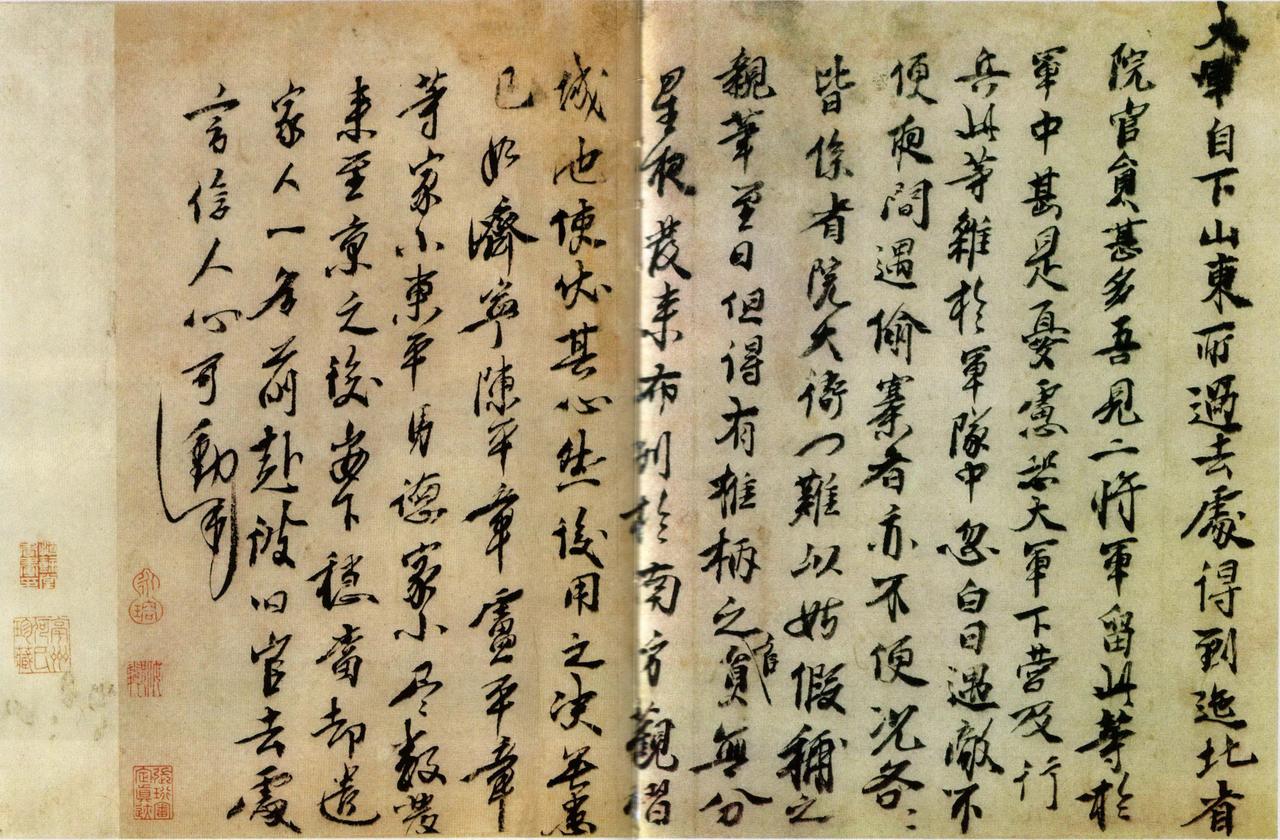 大軍自下山東所過去處得到迤北省
院官員甚多吾見二將軍留此等於
軍中甚是憂慮恐大軍下營及行
兵此等雜於軍隊中忽白日遇敵不
便夜間遇偷寨者亦不便況各〻
皆係省院大衙门難以姑假補之
親筆至日但得有權柄之官員無分
星夜發來布列於南方觀
城池使伏其心然後用之決無患
已如濟寧陳平章盧平章
等家小東平馬德家小尽數發
來至京之後安下穩當却遣
家人一名前赴彼旧官去處
言信人心可動
張珩審定真蹟